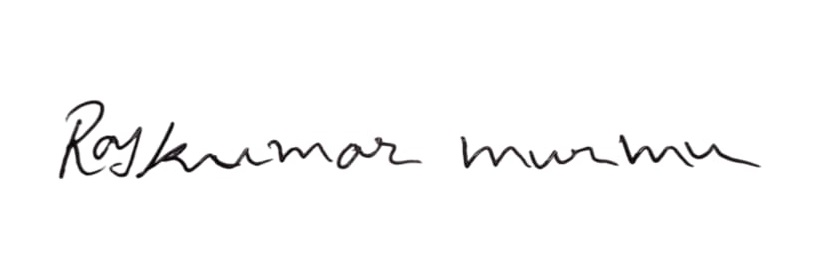 Rajkumar murmu